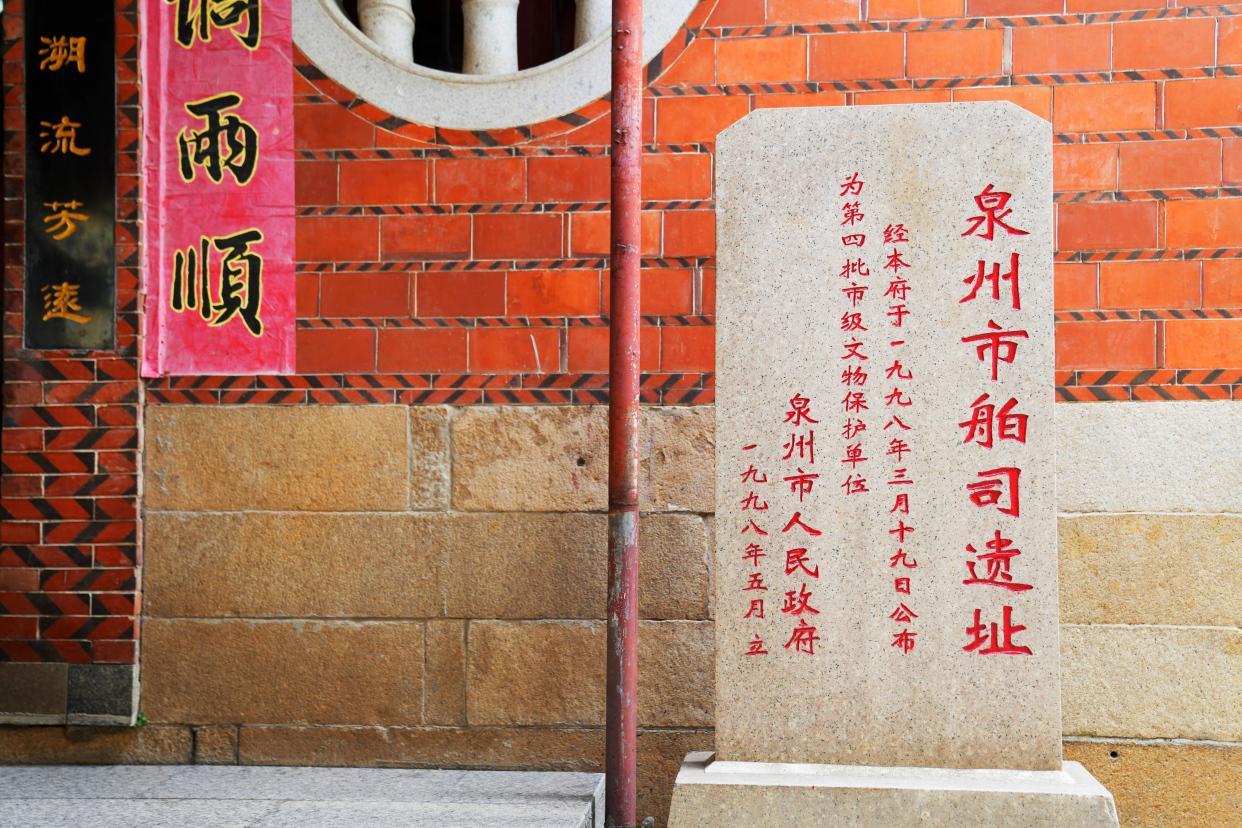 泉州市舶司遗址
经本府于一九九八年三月十九日公布
为第四批市级文物保护单位
泉州市人民政府
一九九八年五月 立
調雨順
溯流芳遠